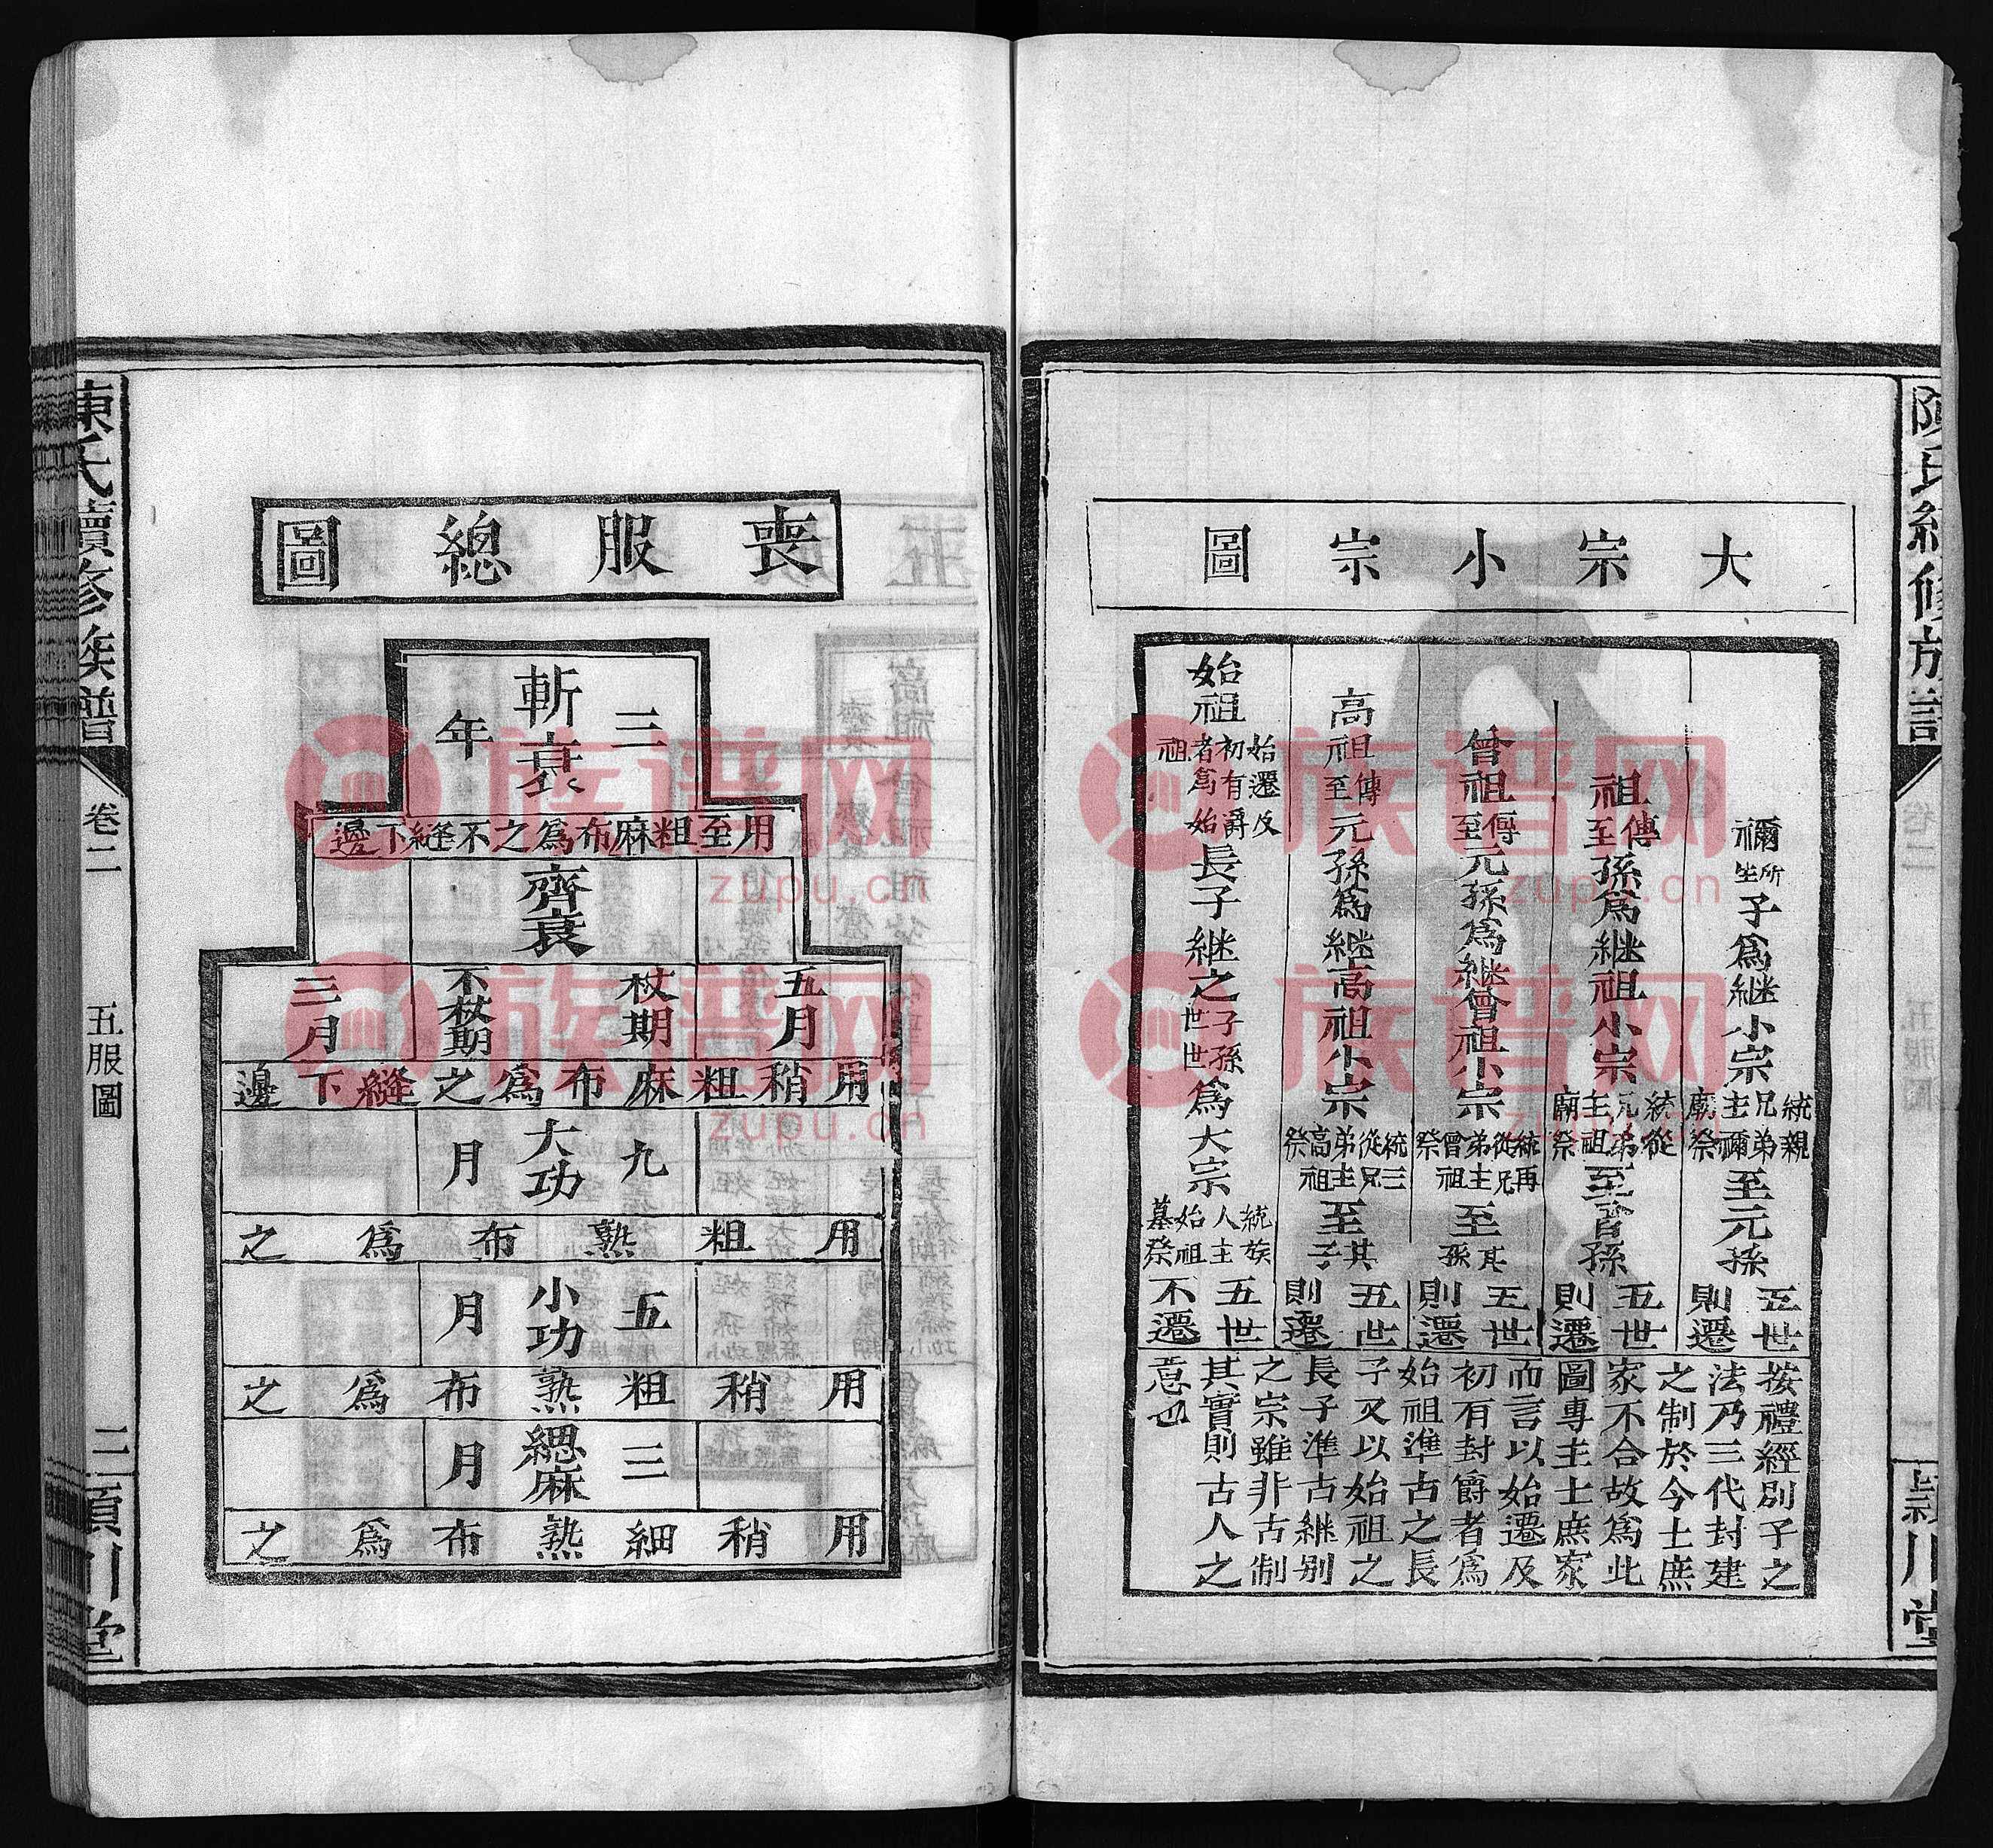 陳氏續修族譜
卷二
五服圖
潁川堂
大宗小宗圖
禰所生子為継小宗統親兄弟主禰廟祭至元孫五世則遷
祖傳至孫為継祖小宗統從兄弟主祖廟祭至曾孫五世則遷
曾祖傳至元孫為継曾祖小宗統再從兄弟主曾祖祭至其孫五世則遷
高祖傳至元孫為継高祖小宗統三從兄弟主高祖祭至其子五世則遷
始祖始遷及初有爵者為始祖長子継之子孫世世為大宗統族人主始祖墓祭五世不遷
按禮經別子之
法乃三代封建
之制於今士庶
家不合故為此
圖專主士庶家
而言以始遷及
初有封爵者為
始祖準古之長
子又以始祖之
長子準古継别
之宗雖非古制
其實則古人之
意也
喪服總圖
三年
斬衰
用至粗麻布為之不縫下邊
齊衰
五月
杖期
不杖期
三月
用稍粗麻布為之縫下邊
九月
大功
用粗熟布為之
五月
小功
用稍粗熟布為之
三月
緦麻
用稍細熟布為之
陳氏續修族譜
卷二
五服圖
二
潁川堂
族谱网
zupu.cn
族谱网
zupu.cn
族谱网
zupu.cn
族谱网
zupu.cn